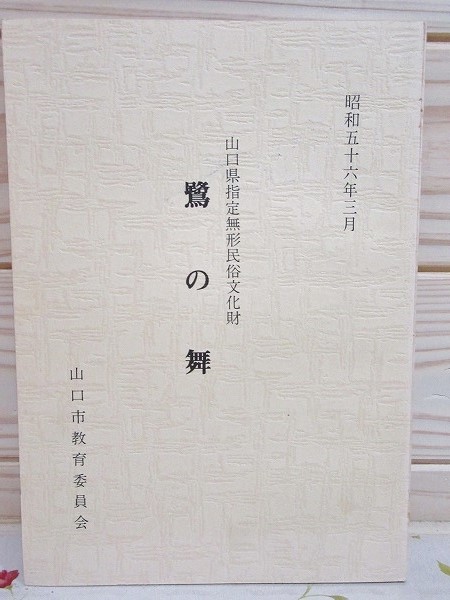 昭和五十六年三月
山口県指定無形民俗文化財
鷺の舞
山口市教育委員会